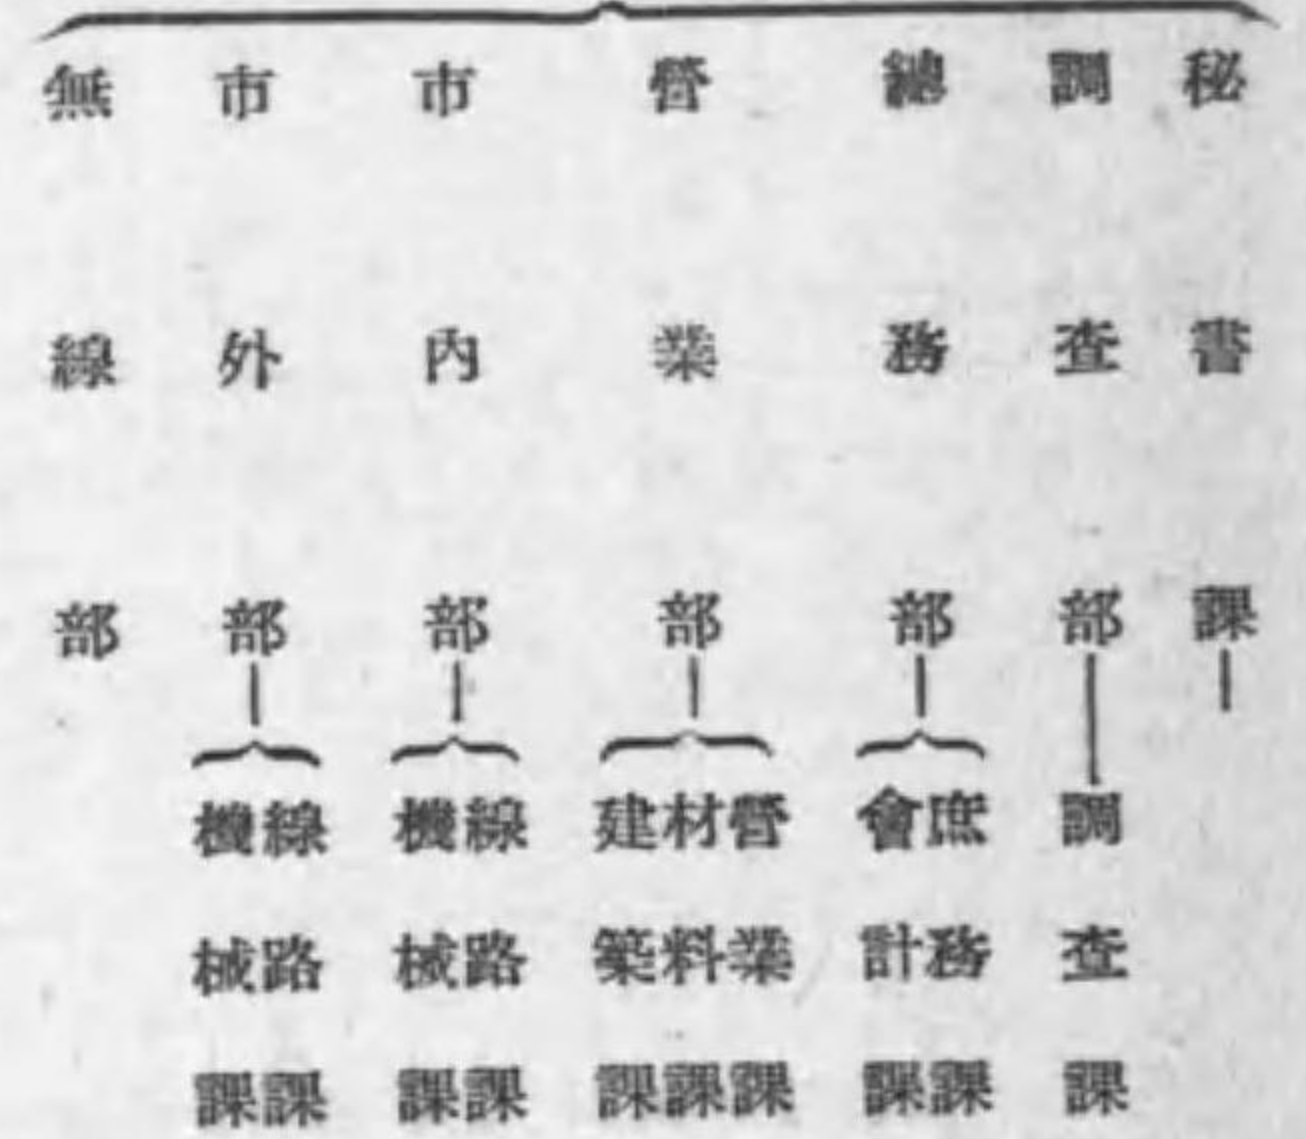 秘書課
調査部
調査課
總務部
庶務課
會計課
營業部
營業課
材料課
建築課
市內部
線路課
機械課
市外部
線路課
機械課
無線部